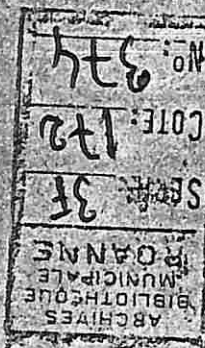 ARCHIVES
BIBLIOTHEQUE
MUNICIPALE
ROANNE
SERIE: 3F
COTE: 172
No: 374